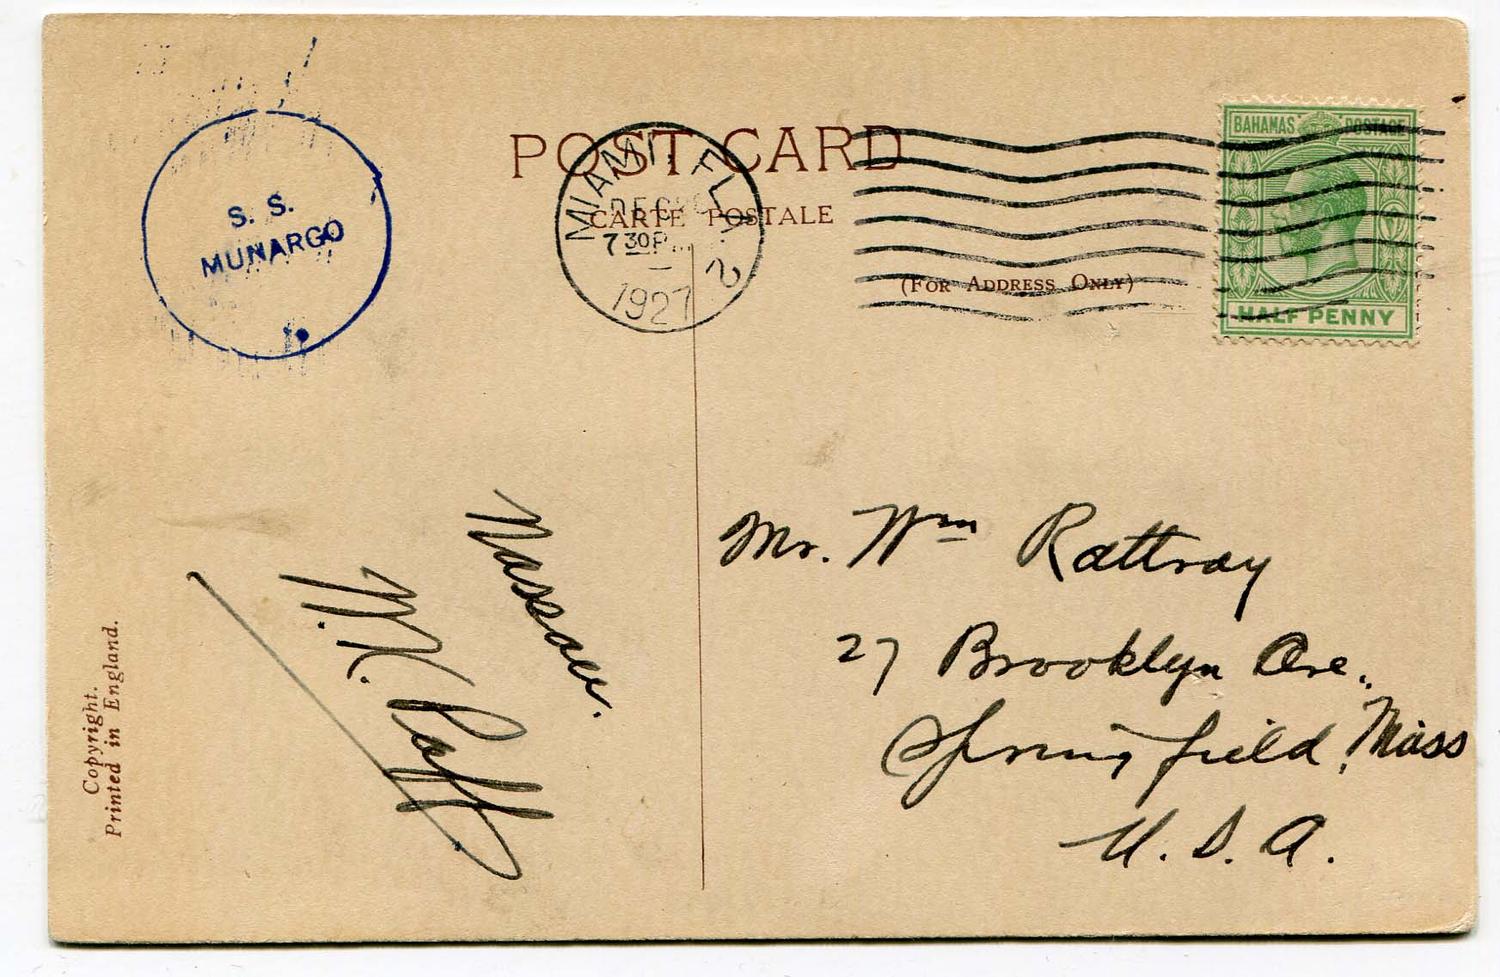 POST CARD
CARTE POSTALE
(FOR ADDRESS ONLY)
S. S.
MUNARGO
MIAMI, FLA.
DEC
7 30 P
2
1927
BAHAMAS POSTAGE
HALF PENNY
Nassau.
W. K. Paff
Mr. Wm Rattray
27 Brooklyn Ave.,
Springfield, Mass
U. S. A.
Copyright.
Printed in England.